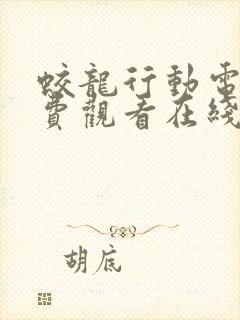 蛟龍行動電
費觀看在綫
胡底